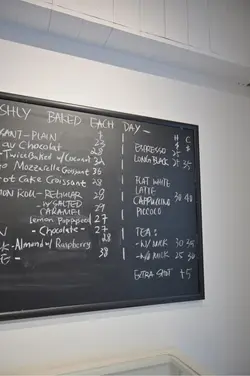 SHLY BAKED EACH DAY -
SANT-PLAIN 23
au Chocolat 28
- Twice Baked w/Coconut 32
Mozzarella Croissant 36
rot Cake Croissant 28
MON ROLL - REGULAR 28
- w SALTED CARAMEL 29
Lemon Poppyseed 27
- Chocolate - 27
28
- Almond w/ Raspberry
38
H C
ESPRESSO 25
LONG BLACK 25 35
FLAT WHITE
LATTE
CAPPUCCINO 38 40
PICCOLO
TEA:
- W/ MILK 30 35
- W/O MILK 25 30
EXTRA SHOT +5